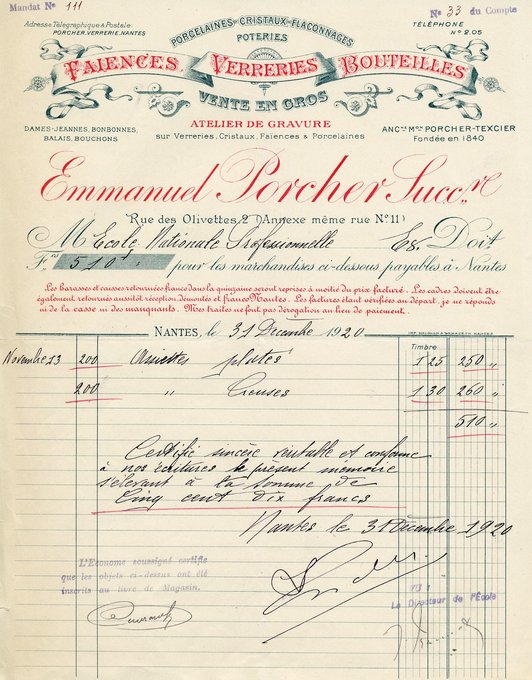 Mandat No 111
No 33 du Compte
Adresse Télégraphique & Postale
PORCHER, VERRERIE, NANTES
TÉLÉPHONE
No 2.05
PORCELAINES CRISTAUX FLACONNAGES
POTERIES
FAIENCES VERRERIES BOUTEILLES
VENTE EN GROS
ATELIER DE GRAVURE
sur Verreries, Cristaux, Faïences & Porcelaines
DAMES-JEANNES, BONBONNES,
BALAIS, BOUCHONS
ANCne Mon PORCHER-TEXCIER
Fondée en 1840
Emmanuel Porcher Succre
Rue des Olivettes 2 (Annexe même rue No 11)
M Ecole Nationale Professionnelle Doit
Fcs 510 f pour les marchandises ci-dessous payables à Nantes
Les barasses et caisses retournées franco dans la quinzaine seront reprises à moitié du prix facturé. Les cadres doivent être
également retournés aussitôt réception, démontés et franco Nantes. Les factures étant vérifiées au départ, je ne réponds
ni de la casse ni des manquants. Mes traites ne font pas dérogation au lieu de paiement.
NANTES, le 31 Décembre 1920
Timbre
Novembre 13 200 Assiettes plates 1 25 250 "
200 " Creuses 1 30 260 "
510 "
Certifié sincère véritable et conforme
à nos écritures le présent memoire
s'élevant à la somme de
Cinq cent dix francs
Nantes le 31 Décembre 1920
L'Econome soussigné certifie
que les objets ci-dessus ont été
inscrits au livre de Magasin.
VU :
Le Directeur de l'École